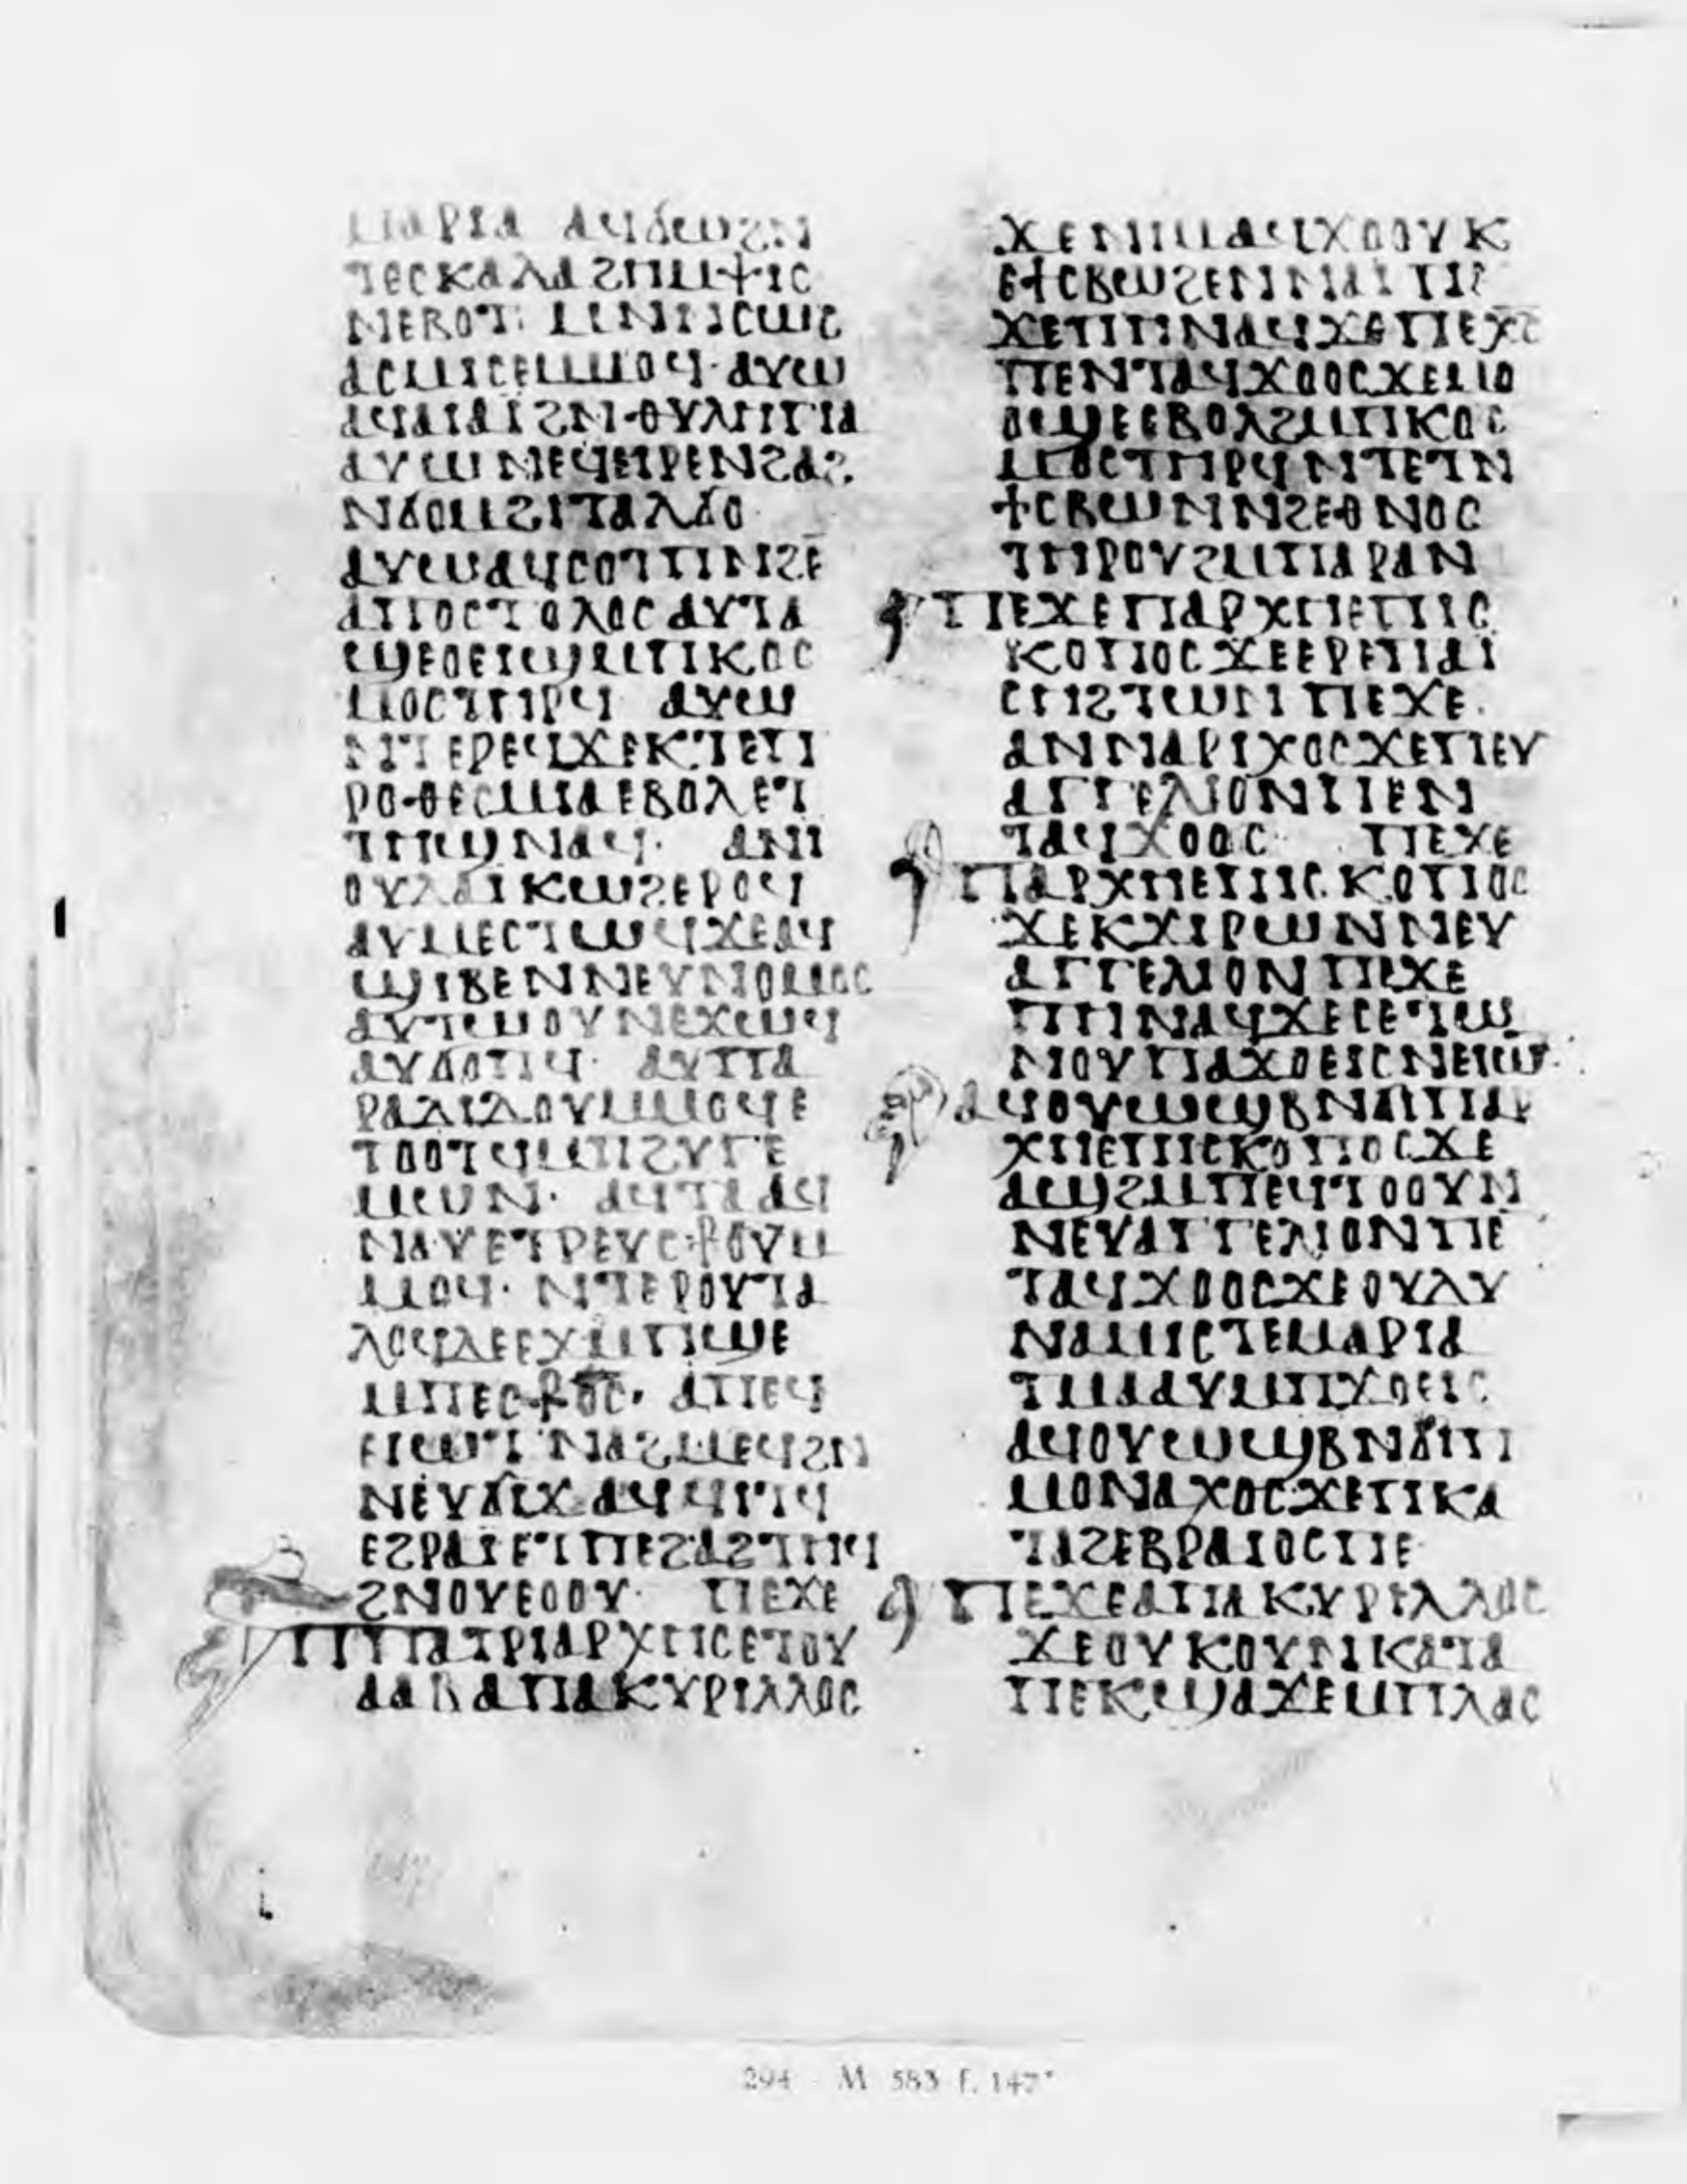 ⲙⲁⲣⲓⲁ ⲁϥϭⲱϩⲛ
ⲧⲉⲥⲕⲁⲗⲁϩⲏⲙⲯⲓⲥ
ⲛⲉⲃⲟⲧ ⲙⲛⲛⲥⲱⲥ
ⲁⲥⲙⲓⲥⲉⲙⲙⲟϥ· ⲁⲩⲱ
ⲁϥⲁⲓⲁⲓϩⲛⲑⲩⲗⲏⲕⲓⲁ
ⲁⲩⲱⲛⲉϥⲉⲓⲣⲉⲛϩⲁϩ
ⲛϭⲟⲙϩⲓⲧⲁⲗϭⲟ
ⲁⲩⲱⲁϥⲥⲟⲧⲡⲛⲛϩⲉ
ⲁⲡⲟⲥⲧⲟⲗⲟⲥⲁⲩⲧⲁ
ϣⲉⲟⲉⲓϣⲙⲡⲕⲟⲥ
ⲙⲟⲥⲧⲏⲣϥ ⲁⲩⲱ
ⲛⲧⲉⲣⲉϥϫⲉⲕⲧⲉⲡ
ⲣⲟⲑⲉⲥⲙⲓⲁⲉⲃⲟⲗⲉⲧ
ⲧⲏϣⲛⲁϥ· ⲁⲛ
ⲟⲩⲗⲁⲓⲕⲱϩⲉⲣⲟϥ
ⲁⲩⲙⲉⲥⲧⲱϥϫⲉⲁϥ
ϣⲓⲃⲉⲛⲛⲉⲩⲛⲟⲙⲟⲥ
ⲁⲩⲧⲱⲟⲩⲛⲉϫⲱϥ
ⲁⲩϭⲟⲡϥ· ⲁⲩⲡⲁ
ⲣⲁⲇⲓⲇⲟⲩⲙⲙⲟϥⲉ
ⲧⲟⲟⲧϥⲙⲡϩⲩⲅⲉ
ⲙⲱⲛ· ⲁϥⲧⲁⲁϥ
ⲛⲁⲩⲉⲧⲣⲉⲩⲥ⳨ⲟⲩⲙ
ⲙⲟϥ· ⲛⲧⲉⲣⲟⲩⲧⲁ
ⲗⲟϥⲇⲉⲉϫⲙⲡϣⲉ
ⲙⲡⲉⲥ⳨ⲟⲥ· ⲁⲡⲉϥ
ⲉⲓⲱⲧ ⲛⲁϩⲙⲉϥϩⲛ
ⲛⲉⲩϭⲓϫ ⲁϥϥⲓⲧϥ
ⲉϩⲣⲁⲓⲉⲧⲡⲉϩⲁϩⲧⲏϥ
ϩⲛⲟⲩⲉⲟⲟⲩ· ⲡⲉϫⲉ
ⲡⲡⲁⲧⲣⲓⲁⲣⲭⲏⲥⲉⲧⲟⲩ
ⲁⲁⲃⲁⲡⲁⲕⲩⲣⲓⲗⲗⲟⲥ
ϫⲉⲛⲓⲙⲁϥϫⲟⲟⲩⲕ
ⲉϯⲥⲃⲱϩⲉⲛⲛⲁⲓ ⲡⲉ
ϫⲉⲡⲏⲛⲁϥϫⲉⲡⲉⲭⲥ
ⲡⲉⲛⲧⲁϥϫⲟⲟⲥϫⲉⲙⲟ
ⲟϣⲉⲉⲃⲟⲗϩⲙⲡⲕⲟⲥ
ⲙⲟⲥⲧⲏⲣϥⲛⲧⲉⲧⲛ
ϯⲥⲃⲱⲛⲛϩⲉⲑⲛⲟⲥ
ⲧⲏⲣⲟⲩϩⲙⲡⲁⲣⲁⲛ
ⲡⲉϫⲉⲡⲁⲣⲭⲏⲉⲡⲓⲥ
ⲕⲟⲡⲟⲥϫⲉⲉⲣⲉⲡⲁⲓ
ⲥⲏϩⲧⲱⲛ ⲡⲉϫⲉ
ⲁⲛⲛⲁⲣⲓⲭⲟⲥϫⲉⲡⲉⲩ
ⲁⲅⲅⲉⲗⲓⲟⲛⲡⲉⲛ
ⲧⲁϥϫⲟⲟⲥ ⲡⲉϫⲉ
ⲡⲁⲣⲭⲏⲉⲡⲓⲥⲕⲟⲡⲟⲥ
ϫⲉⲕⲭⲓⲣⲱⲛⲛⲉⲩ
ⲁⲅⲅⲉⲗⲓⲟⲛ ⲡⲉϫⲉ
ⲡⲏⲛⲁϥϫⲉⲥⲉⲧⲱ
ⲛⲟⲩⲡⲁϫⲟⲉⲓⲥⲛⲉⲓⲱⲧ
ⲁϥⲟⲩⲱϣⲃⲛϭⲓⲡⲁⲣ
ⲭⲏⲉⲡⲓⲥⲕⲟⲡⲟⲥϫⲉ
ⲁϣϩⲙⲡⲉϥⲧⲟⲟⲩⲛ
ⲛⲉⲩⲁⲅⲅⲉⲗⲓⲟⲛⲡⲉ
ⲧⲁϥϫⲟⲟⲥϫⲉⲟⲩⲇⲩ
ⲛⲁⲙⲓⲥⲧⲉⲙⲁⲣⲓⲁ
ⲧⲙⲁⲁⲩⲙⲡϫⲟⲉⲓⲥ
ⲁϥⲟⲩⲱϣⲃⲛϭⲓⲡ
ⲙⲟⲛⲁⲭⲟⲥϫⲉⲡⲕⲁ
ⲧⲁϩⲉⲃⲣⲁⲓⲟⲥⲡⲉ
ⲡⲉϫⲉⲁⲡⲁⲕⲩⲣⲓⲗⲗⲟⲥ
ϫⲉⲟⲩⲕⲟⲩⲛⲕⲁⲧⲁ
ⲡⲉⲕϣⲁϫⲉⲙⲡⲗⲁⲥ
294 M 583 f. 147ᵛ